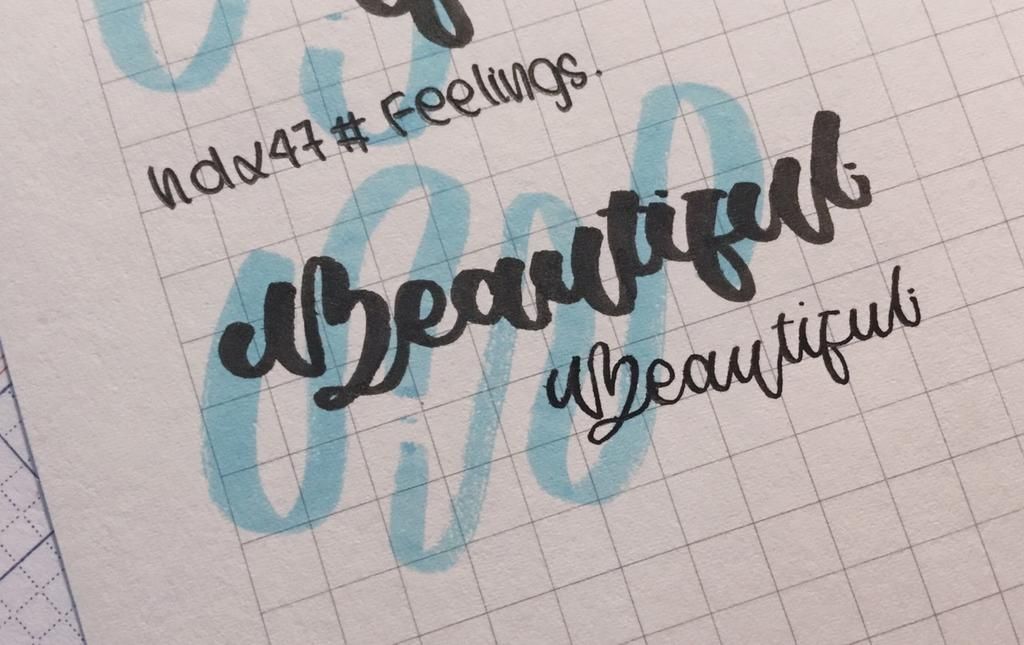 ndx47# Feelings.
Beautiful
Beautiful